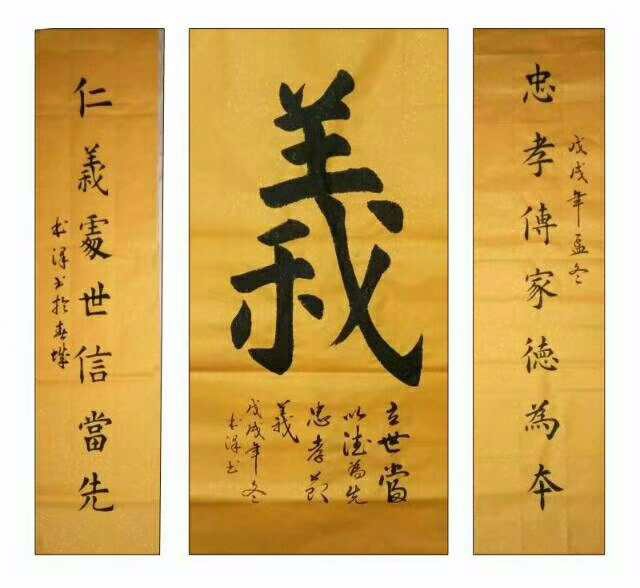 戊戌年孟冬
忠孝傳家德為本
義
立世當
以德為先
忠孝節
義
戊戌年冬
泽书
仁義處世信當先
泽书於春城